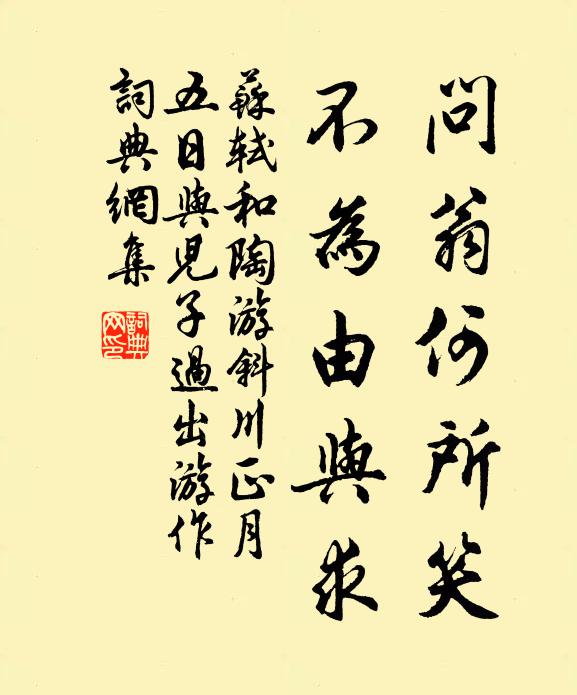 問翁何所笑
不為由與求
蘇軾和陶游斜川正月
五日與児子過出游作
詞典網集
詞典網印